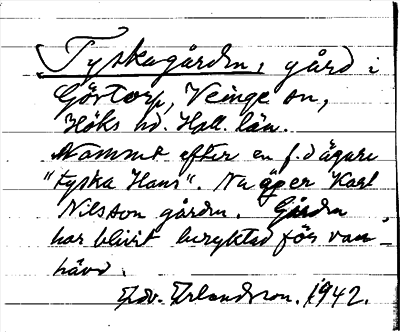 Tyskagården, gård i
Göstorp, Veinge sn,
Höks hd. Hall. län.
Namnet efter en f.d ägare
"Tyska Hans". Nu äger Karl
Nilsson gården. Gården
har blivit beryktad för van-
hävd.
Edv. Erlandsson. 1942.